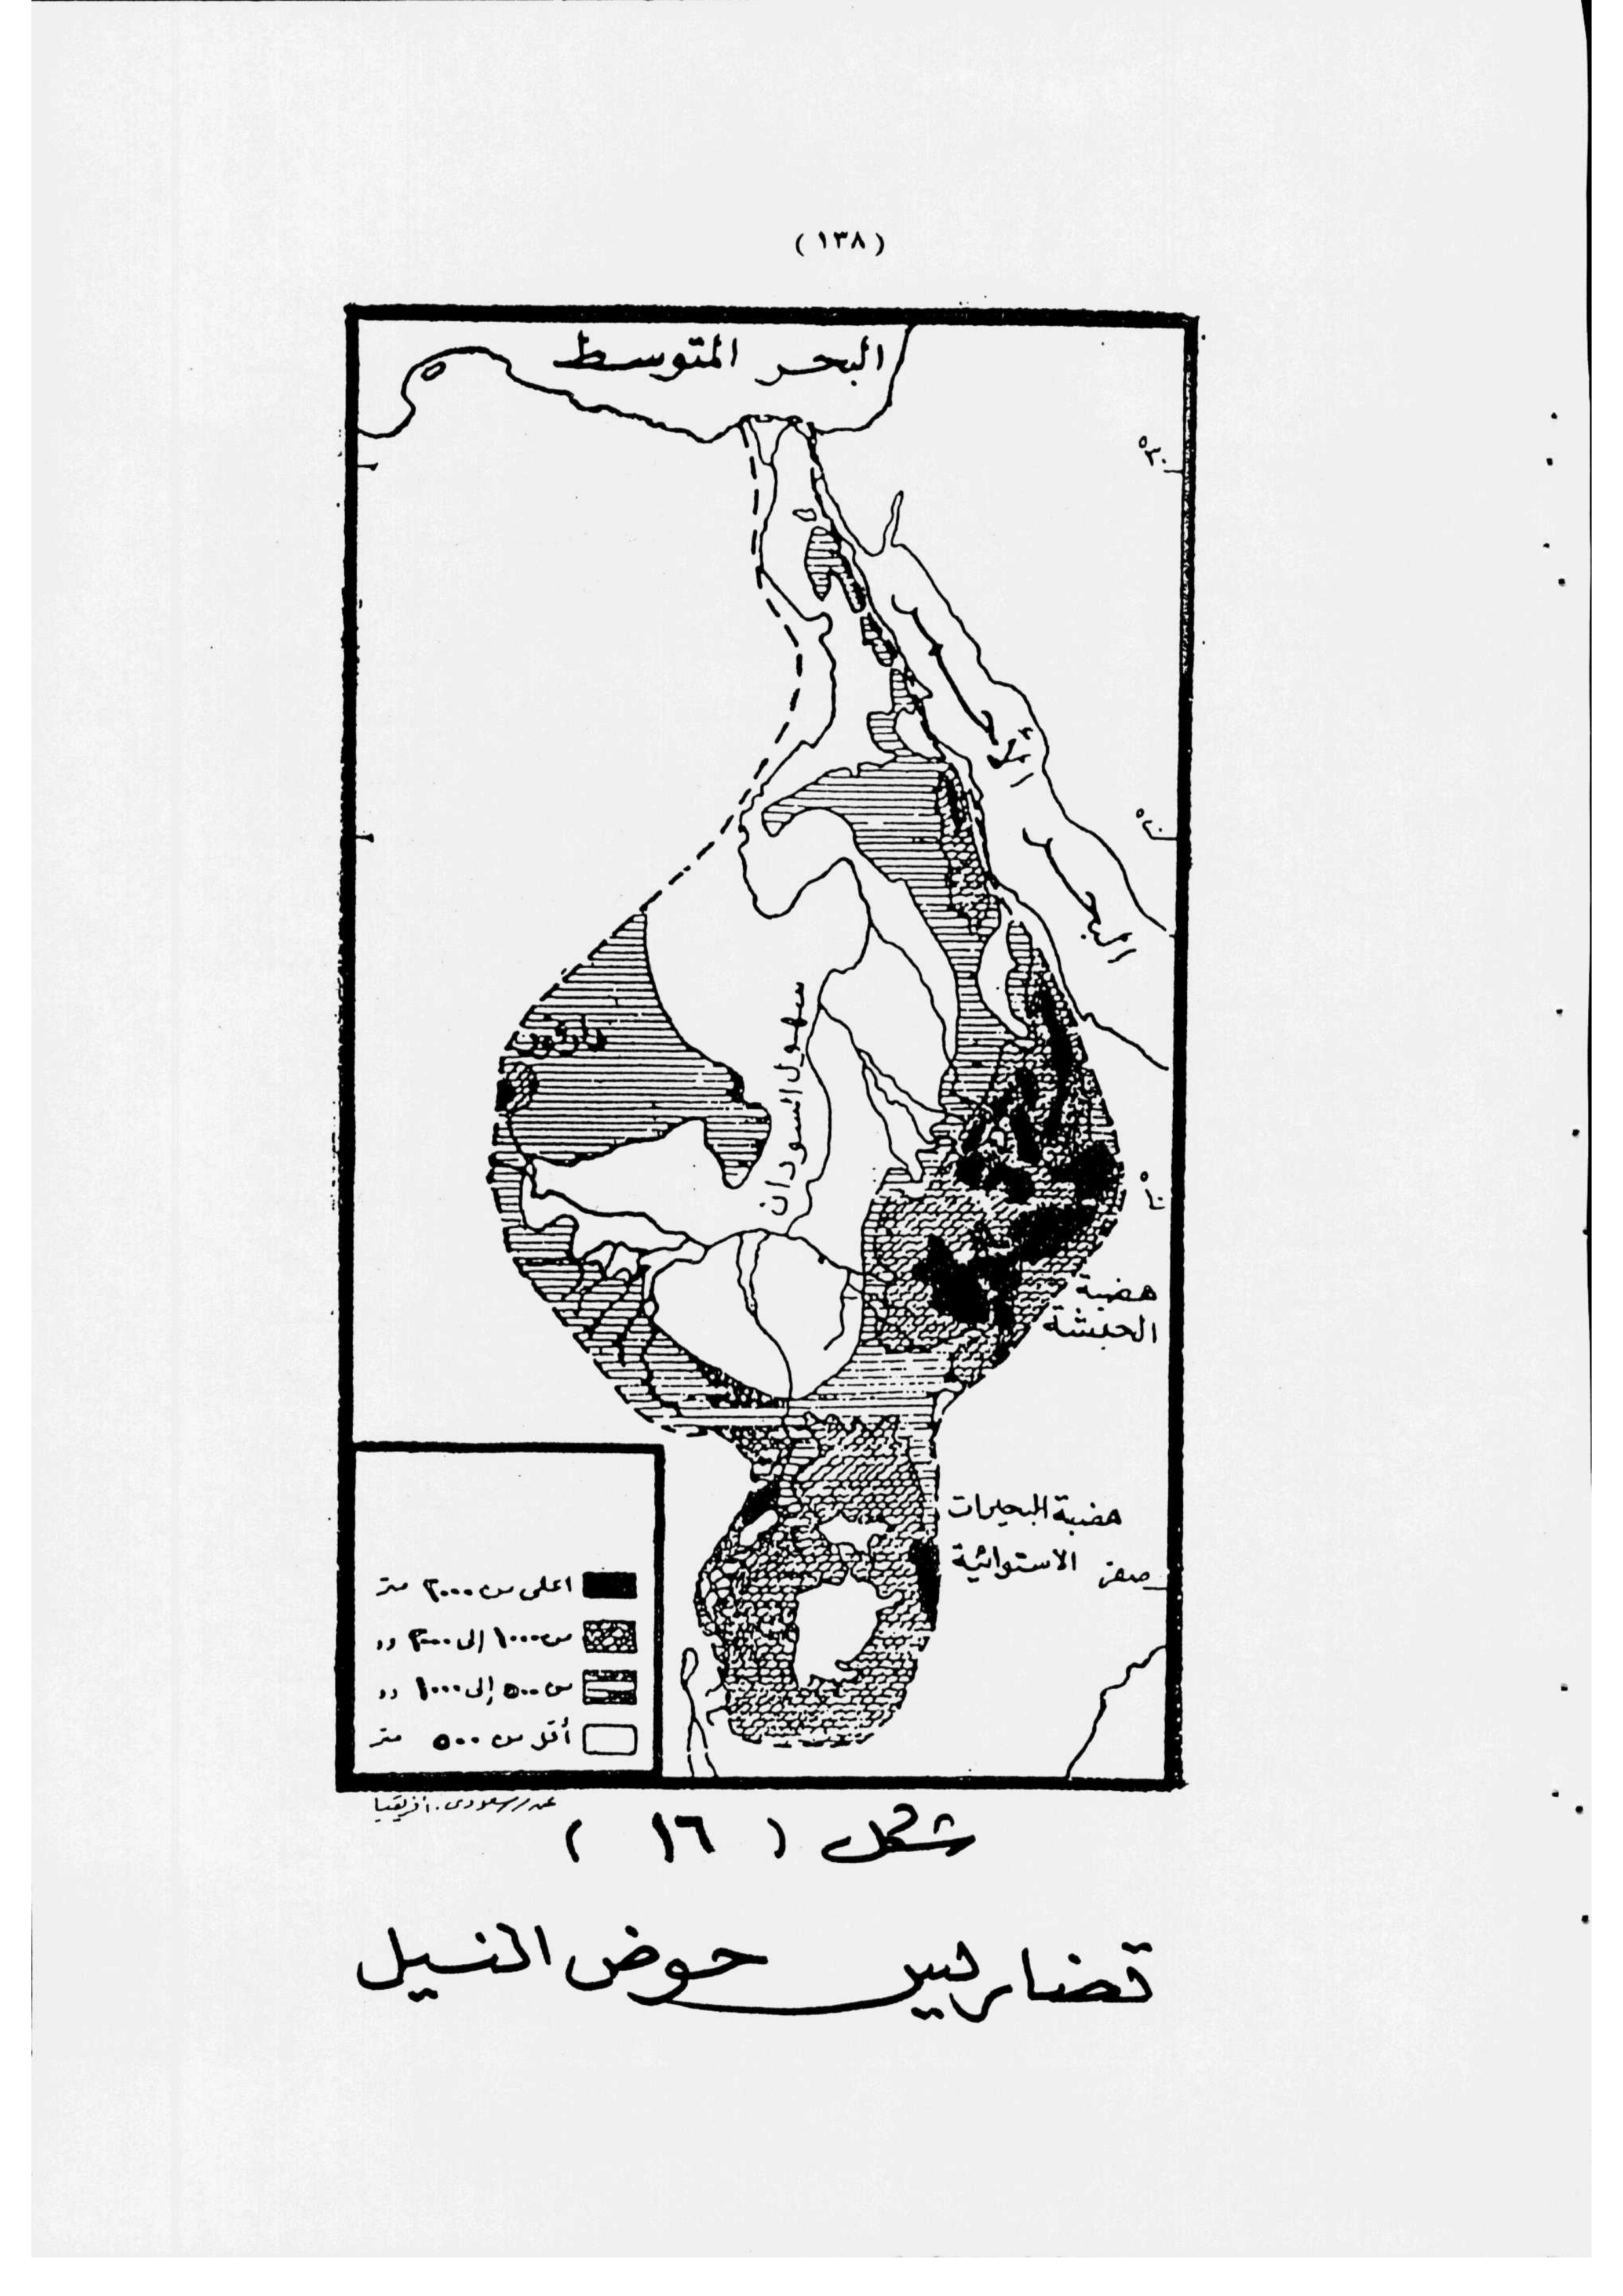 (١٣٨)
البحر المتوسط
٣٠°
البحر الأحمر
٢٠°
دارفور
سهول السودان
١٠°
هضبة
الحبشة
هضبة البحيرات
الاستوائية
صفر
اعلى من ٢٠٠٠ متر
من ١٠٠٠ إلى ٢٠٠٠ ,,
من ٥٠٠ إلى ١٠٠٠ ,,
أقل من ٥٠٠ متر
سعودى. افريقيا
شكل ( ١٦ )
تضاريس حوض النيل